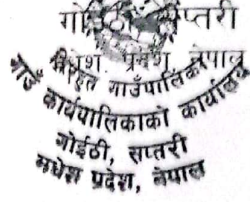 गोइठी, सप्तरी
मधेश प्रदेश, नेपाल
गाउँपालिका
गाउँ कार्यपालिकाको कार्यालय
गोईठी, सप्तरी
मधेश प्रदेश, नेपाल